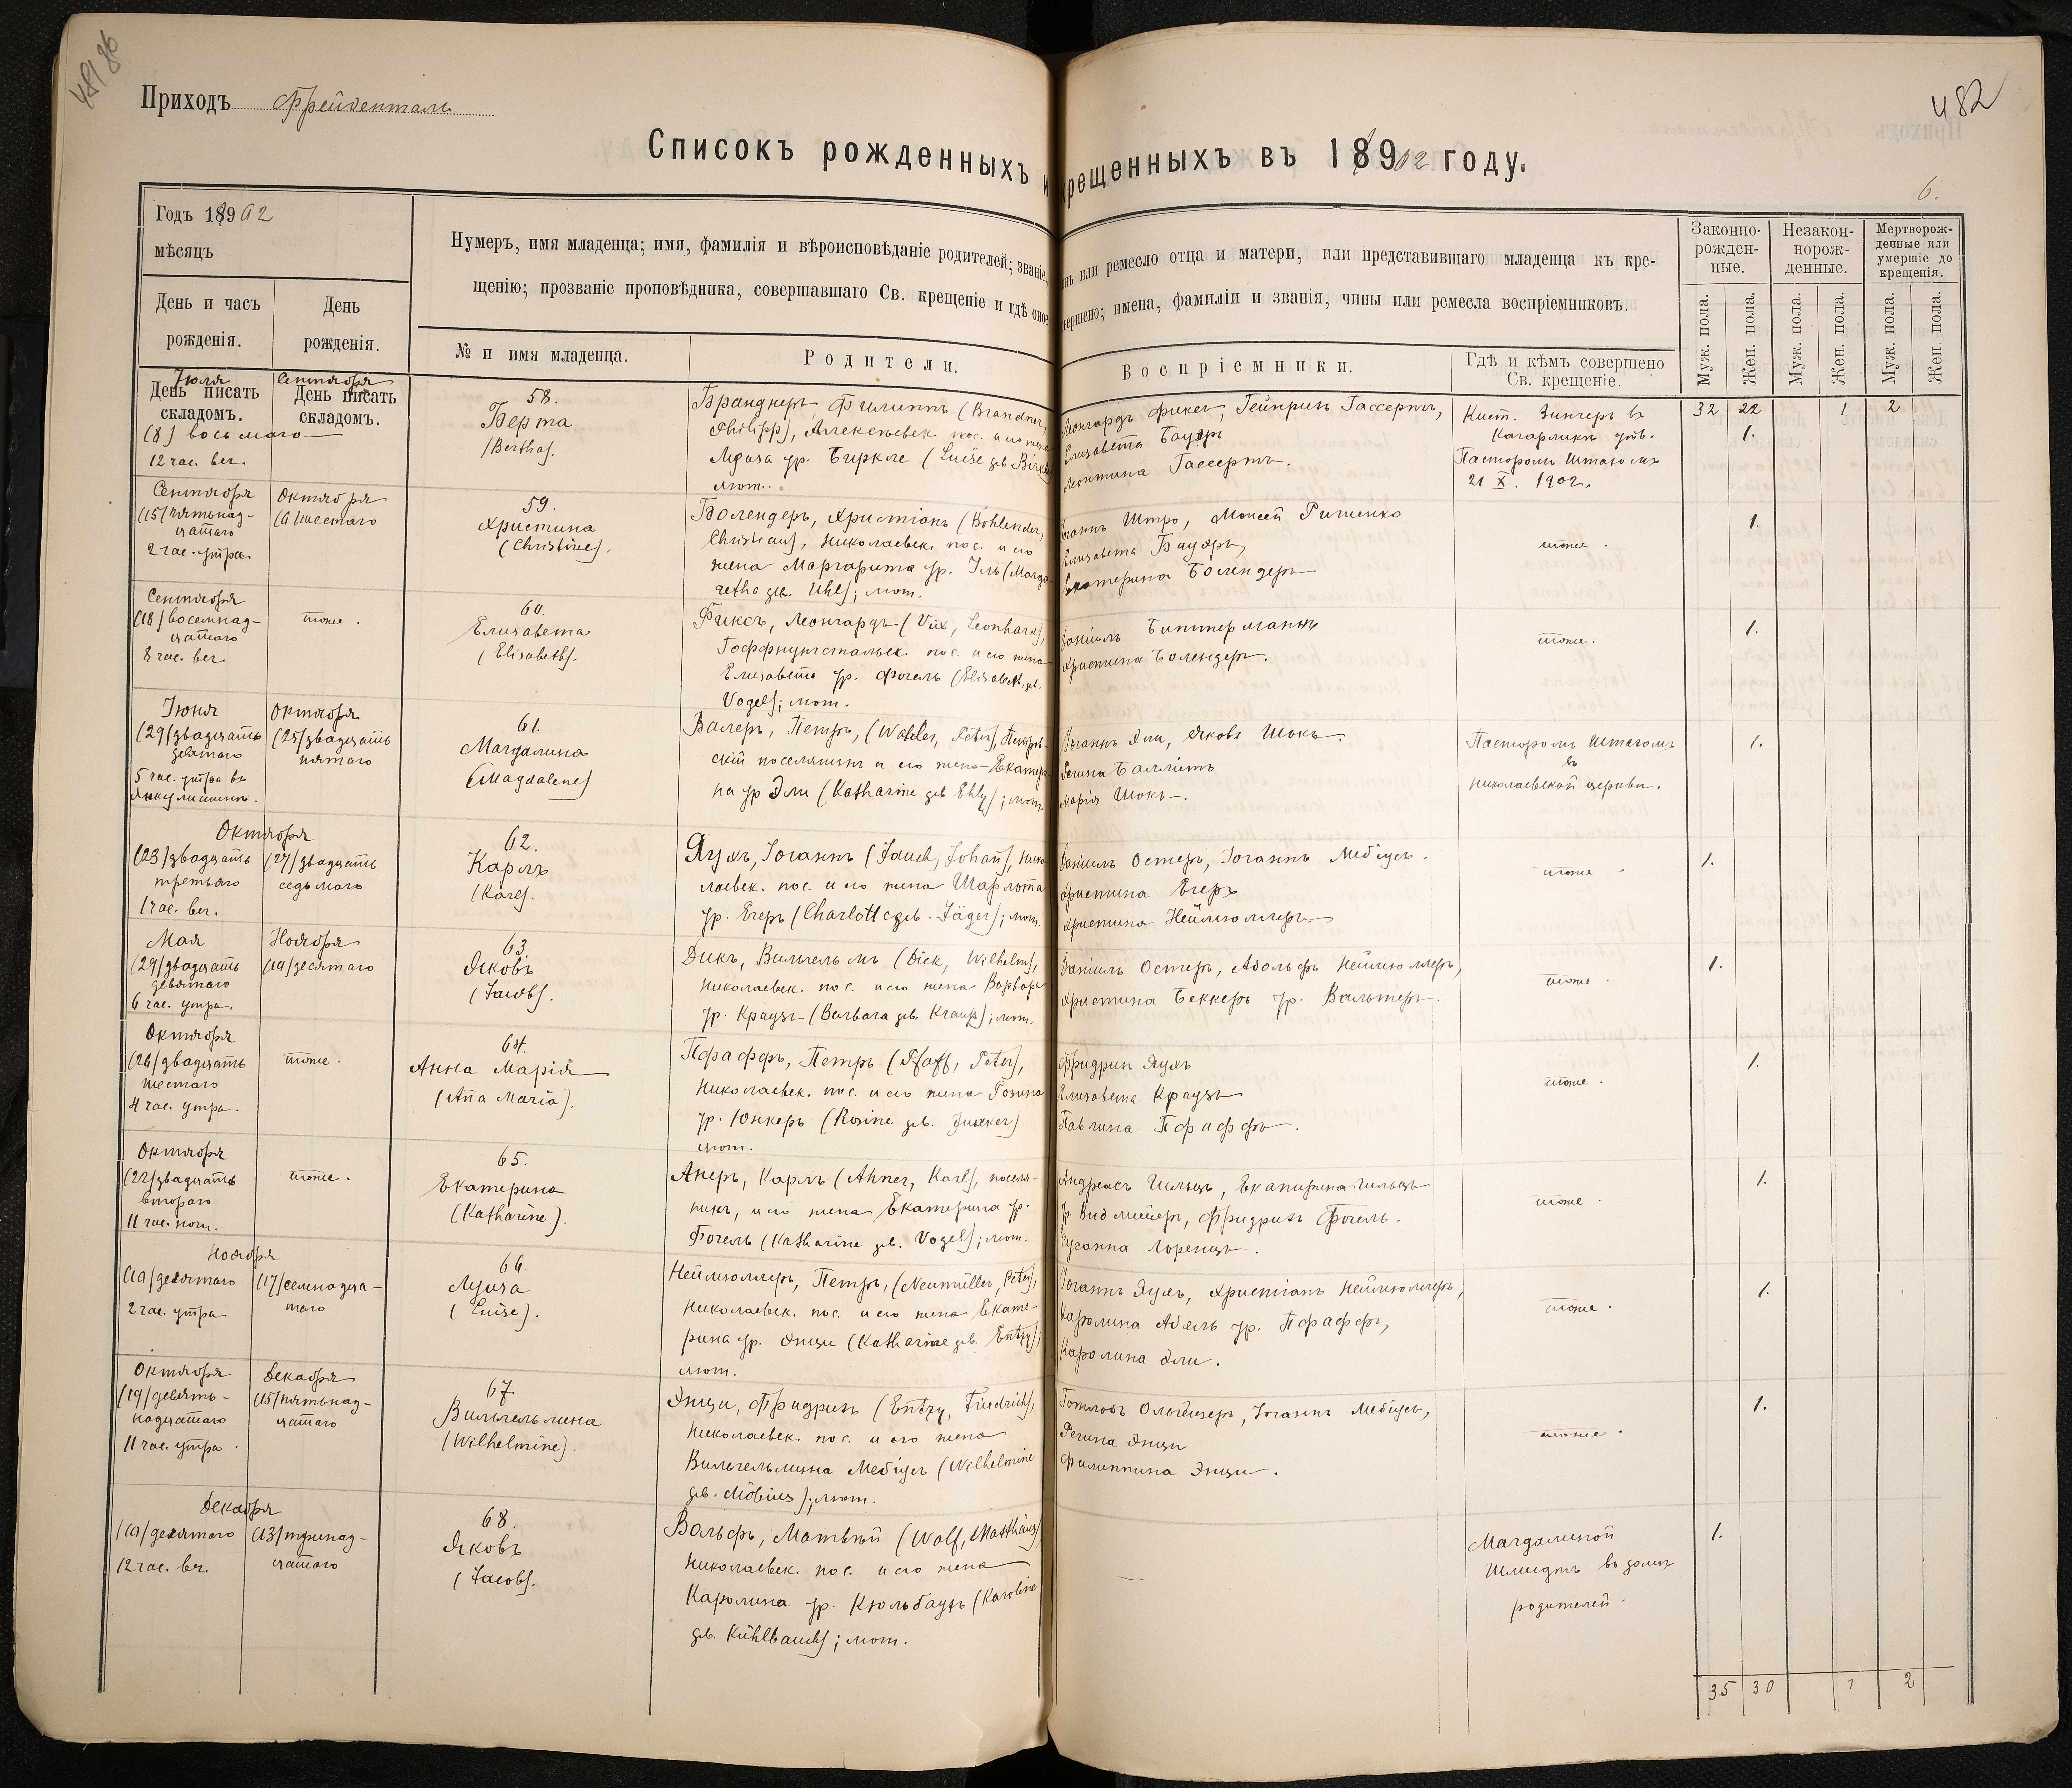 481 об
Приходъ Фрейденталь
482
Списокъ рожденныхъ и крещенныхъ въ 18902 году.
6.
Годъ 18902
мѣсяцъ
День и часъ рожденія.
День рожденія.
Нумеръ, имя младенца; имя, фамилія и вѣроисповѣданіе родителей; званіе, чинъ или ремесло отца и матери, или представившаго младенца къ кре-
щенію; прозваніе проповѣдника, совершавшаго Св. крещеніе и гдѣ оное совершено; имена, фамиліи и званія, чины или ремесла воспріемниковъ.
№ и имя младенца.
Родители.
Воспріемники.
Гдѣ и кѣмъ совершено Св. крещеніе.
Законно-рожден-ные.
Незакон-норож-денные.
Мертворож-денные или умершіе до крещенія.
Муж. пола.
Жен. пола.
Муж. пола.
Жен. пола.
Муж. пола.
Жен. пола.
Іюля
Сентября
День писать складомъ.
День писать складомъ.
(8) восьмаго
12 час. веч.
58.
Берта
(Bertha).
Бранднеръ, Филиппъ (Brandner,
Philipp), Алексѣевск. пос. и его жена
Луиза ур. Биркле (Luise geb.
лют.
Леонгардъ Фиксъ, Гейнрихъ Гассертъ,
Елизавета Бауэръ
Гассертъ.
Кист. Зингеръ въ
Кагарликъ утв.
Пасторомъ Штахомъ
21 X. 1902.
32 22 1 2
1.
Сентября
(15) пятьнад-
цатаго
2 час. утра.
Октября
(6) шестаго
59.
Христина
(Christine).
Болендеръ, Христіанъ (Bohlender,
Christian), Николаевск. пос. и его
жена Маргарита ур. Иль (Marga-
retha geb. Uhl); лют.
Іоганнъ Штро, Моисей
Елизавета Бауэръ,
Екатерина Болендеръ
тоже.
1.
Сентября
(18) восемнад-
цатаго
8 час. веч.
тоже.
60.
Елизавета
(Elisabeth).
Фиксъ, Леонгардъ (Vix, Leonhard),
Гоффнунгстальск. пос. и его жена
Елизавета ур. Фогель (Elisabeth geb.
Vogel); лют.
Даніилъ Биттерманнъ
Христина Болендеръ.
тоже.
1.
Іюня
(29) двадцать
девятаго
5 час. утра въ
Октября
(25) двадцать
пятаго
61.
Магдалина
(Magdalene)
Валеръ, Петръ, (Wahler, Peter), Петров-
скій поселянинъ и его жена Екатери-
на ур Эли (Katharine geb Ehly); лют.
Іоганнъ Эли, Яковъ Шокъ.
Регина Балліетъ
Марія Шокъ.
Пасторомъ Штахомъ
въ
Николаевской церкви.
1.
Октября
(23) двадцать
третьяго
1 час. веч.
(27) двадцать
седьмаго
62.
Карлъ
(Karl).
Яухъ, Іоганнъ (Jauch, Johañ), Нико-
лаевск. пос. и его жена Шарлота
ур. Егеръ (Charlotte geb. Jäger); лют.
Даніилъ Остеръ, Іоганнъ Мебіусъ.
Христина Егеръ
Христина Неймюллеръ
тоже
1.
Мая
(29) двадцать
девятаго
6 час. утра.
Ноября
(10) десятаго
63.
Яковъ
(Jacob).
Дикъ, Вильгельмъ (Dick, Wilhelm),
Николаевск. пос. и его жена Варвара
ур. Краузъ (Barbara geb. Krauß); лют.
Даніилъ Остеръ, Адольфъ Неймюллеръ,
Христина Беккеръ ур. Вальтеръ.
тоже.
1.
Октября
(26) двадцать
шестаго
4 час. утра.
тоже.
64.
Анна Марія
(Aña Maria).
Пфаффъ, Петръ (Pfaff, Peter),
Николаевск. пос. и его жена Розина
ур. Юнкеръ (Rosine geb. Juncker)
лют.
Фридрихъ Яухъ
Елизавета Краузъ
Павлина Пфаффъ.
тоже.
1.
Октября
(22) двадцать
втораго
11 час. ноч.
тоже.
65.
Екатерина
(Katharine).
Анеръ, Карлъ (Ahner, Karl), поселя-
никъ, и его жена Екатерина ур.
Фогель (Katharine geb. Vogel); лют.
Андреасъ Гильцъ, Екатерина Гильцъ
ур. Видмейеръ, Фридрихъ Фогель.
Сусанна Лоренцъ.
тоже.
1.
Ноября
(10) десятаго
2 час. утра
(17) семнадца-
таго
66
Луиза
(Luise).
Неймюллеръ, Петръ, (Neumüller, Peter),
Николаевск. пос. и его жена Екате-
рина ур. Энци (Katharine geb. Entzy);
лют.
Іоганнъ Яухъ, Христіанъ Неймюллеръ,
Каролина Абель ур. Пфаффъ,
Каролина Эли.
тоже.
1.
Октября
(19) девять-
надцатаго
11 час. утра.
Декабря
(15) пятьнад-
цатаго
67.
Вильгельмина
(Wilhelmine).
Энци, Фридрихъ (Entzy, Friedrich),
Николаевск. пос. и его жена
Вильгельмина Мебіусъ (Wilhelmine
geb. Möbius); лют.
Готлобъ Ольгейзеръ, Іоганнъ Мебіусъ,
Регина Энци
Филиппина Энци.
тоже.
1.
Декабря
(10) десятаго
12 час. веч.
(13) тринад-
цатаго
68.
Яковъ
(Jacob).
Вольфъ, Матвѣй (Wolf, Matthäus)
Николаевск. пос. и его жена
Каролина ур. Кюльбаухъ (Karoline
geb. Kühlbauch); лют.
—
Магдалиной
Шмидтъ въ домѣ
родителей.
1.
35 30 1 2